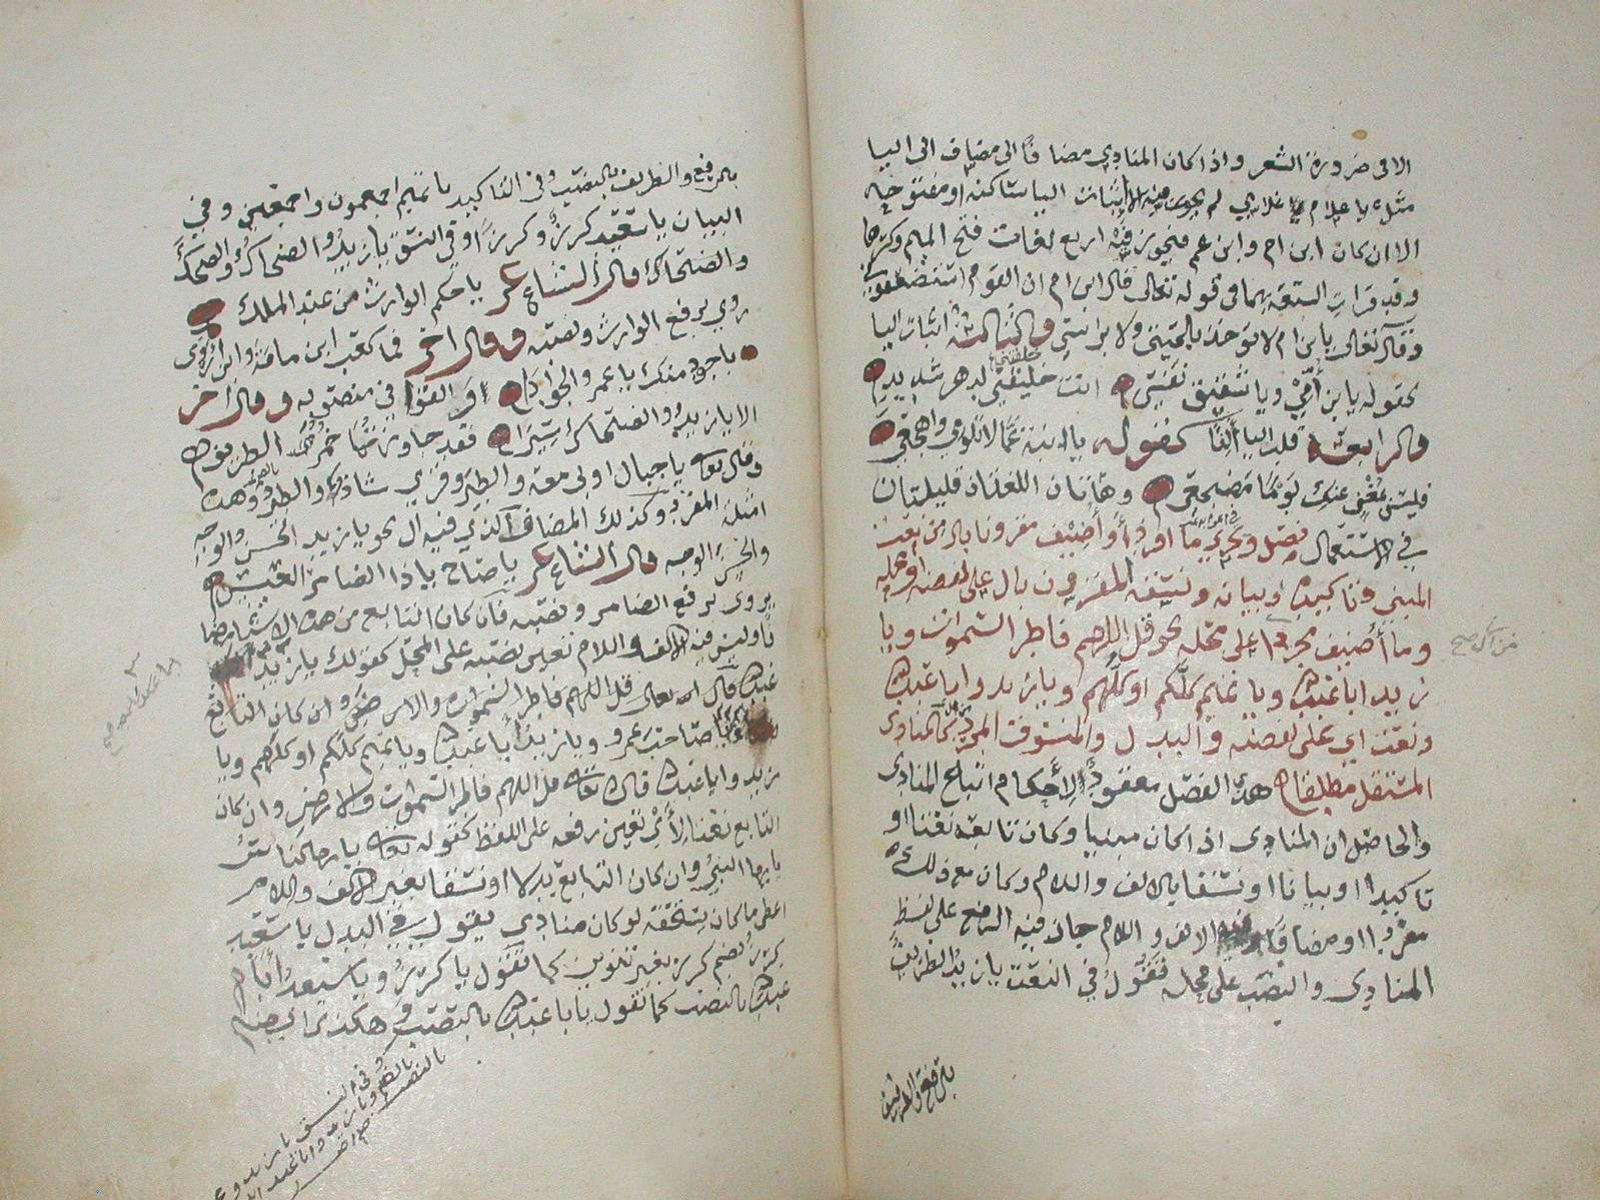 الا فى ضرورة الشعر واذا كان المنادي مضافًا الى مضاف الى اليا
مثل يا غلام غلامي لم يجز فيه الا اثبات اليا ساكنة او مفتوحة
الا ان كان ابن ام وابن عم فيجوز فيه اربع لغات فتح الميم وكسرها
وقد قرات السبعة بهما فى قوله تعالى قال ابن ام ان القوم استضعفوني
وقال تعالى يا بن ام لا تاخذ بلحيتي ولا براسي والثالثة اثبات اليا
كقوله يا بن أمي ويا شقيق نفسي انت خليفتي لدهر شديد
والرابعة قلب اليا الفًا كقوله يا ابنة عما لا تلومي واهجعي
فليس يخلو عنك يومًا مضجعي وهاتان اللغتان قليلتان
في الاستعمال فصل ويجري ما افرد أو أضيف مقرونا بال من نعت
المبني وتاكيده وبيانه ونسقه المقرون بال على لفظه او محله
وما أضيف مجردا على محله نحو قل اللهم فاطر السموات ويا
زيد ابا عبد الله ويا تميم كلكم او كلهم ويا زيد وابا عبد الله
ونعت اي على لفظه والبدل والمنسوق المجرد كالمنادى
المستقل مطلقا هذا الفصل معقود لاحكام اتباع المنادى
والحاصل ان المنادى اذا كان مبنيا وكان تابعه نعتا او
تاكيدا او بيانا او نسقا بالالف واللام وكان مع ذلك
مفردا او مضافا وفيه الالف واللام جاز فيه الرفع على لفظ
المنادى والنصب على محله فتقول في النعت يا زيد الظريف
بالرفع والظريف
بالرفع والظريف بالنصب وفى التاكيد يا تميم اجمعون واجمعين وفي
البيان يا سعيد كرزٌ وكرزًا وفي النسق يا زيد والضحاكُ والضحاكَ
والضحاك قال الشاعر يا حكم الوارث من عبد الملك
روي برفع الوارث ونصبه وقال اخر فما كعب ابن مامة وابن اروى
باجود منك يا عمر الجوادا القوافي منصوبه وقال اخر
الا يا زيد والضحاك سيرا فقد جاوزتما خمر الطريق
وقال تعالى يا جبال اوبي معه والطير وقري شاذا والطير وهذه
امثلة المفرد وكذلك المضاف الذي فيه ال نحو يا زيد الحسن الوجه
والحسن الوجه قال الشاعر يا صاح يا ذا الضامر العنس
يروى برفع الضامر ونصبه فان كان التابع من هذه الاشيا مضافا
وليس فيه الالف واللام تعين نصبه على المحل كقولك يا زيد
قال الله تعالى قل اللهم فاطر السموات والارض وان كان التابع
صاحب عمرو ويا زيد أبا عبد الله ويا تميم كلكم او كلهم ويا
زيد وابا عبد الله قال تعالى قل اللهم فاطر السموات والارض وان كان
التابع نعتا لأي تعين رفعه على اللفظ كقوله تعالى يا ايها الناس
يا ايها النبي وان كان التابع بدلا او نسقا بغير الالف واللام
اعطي ما كان يستحقه لو كان منادي تقول في البدل يا سعيد
كرز بضم كرز بغير تنوين كما تقول يا كرز ويا سعيد أبا
عبد الله بالنصب كما تقول يا با عبد الله بالنصب وهكذا
وفى النسق يا زيد وعمرو
بالضم ويا زيد وابا عبد الله
بالنصب